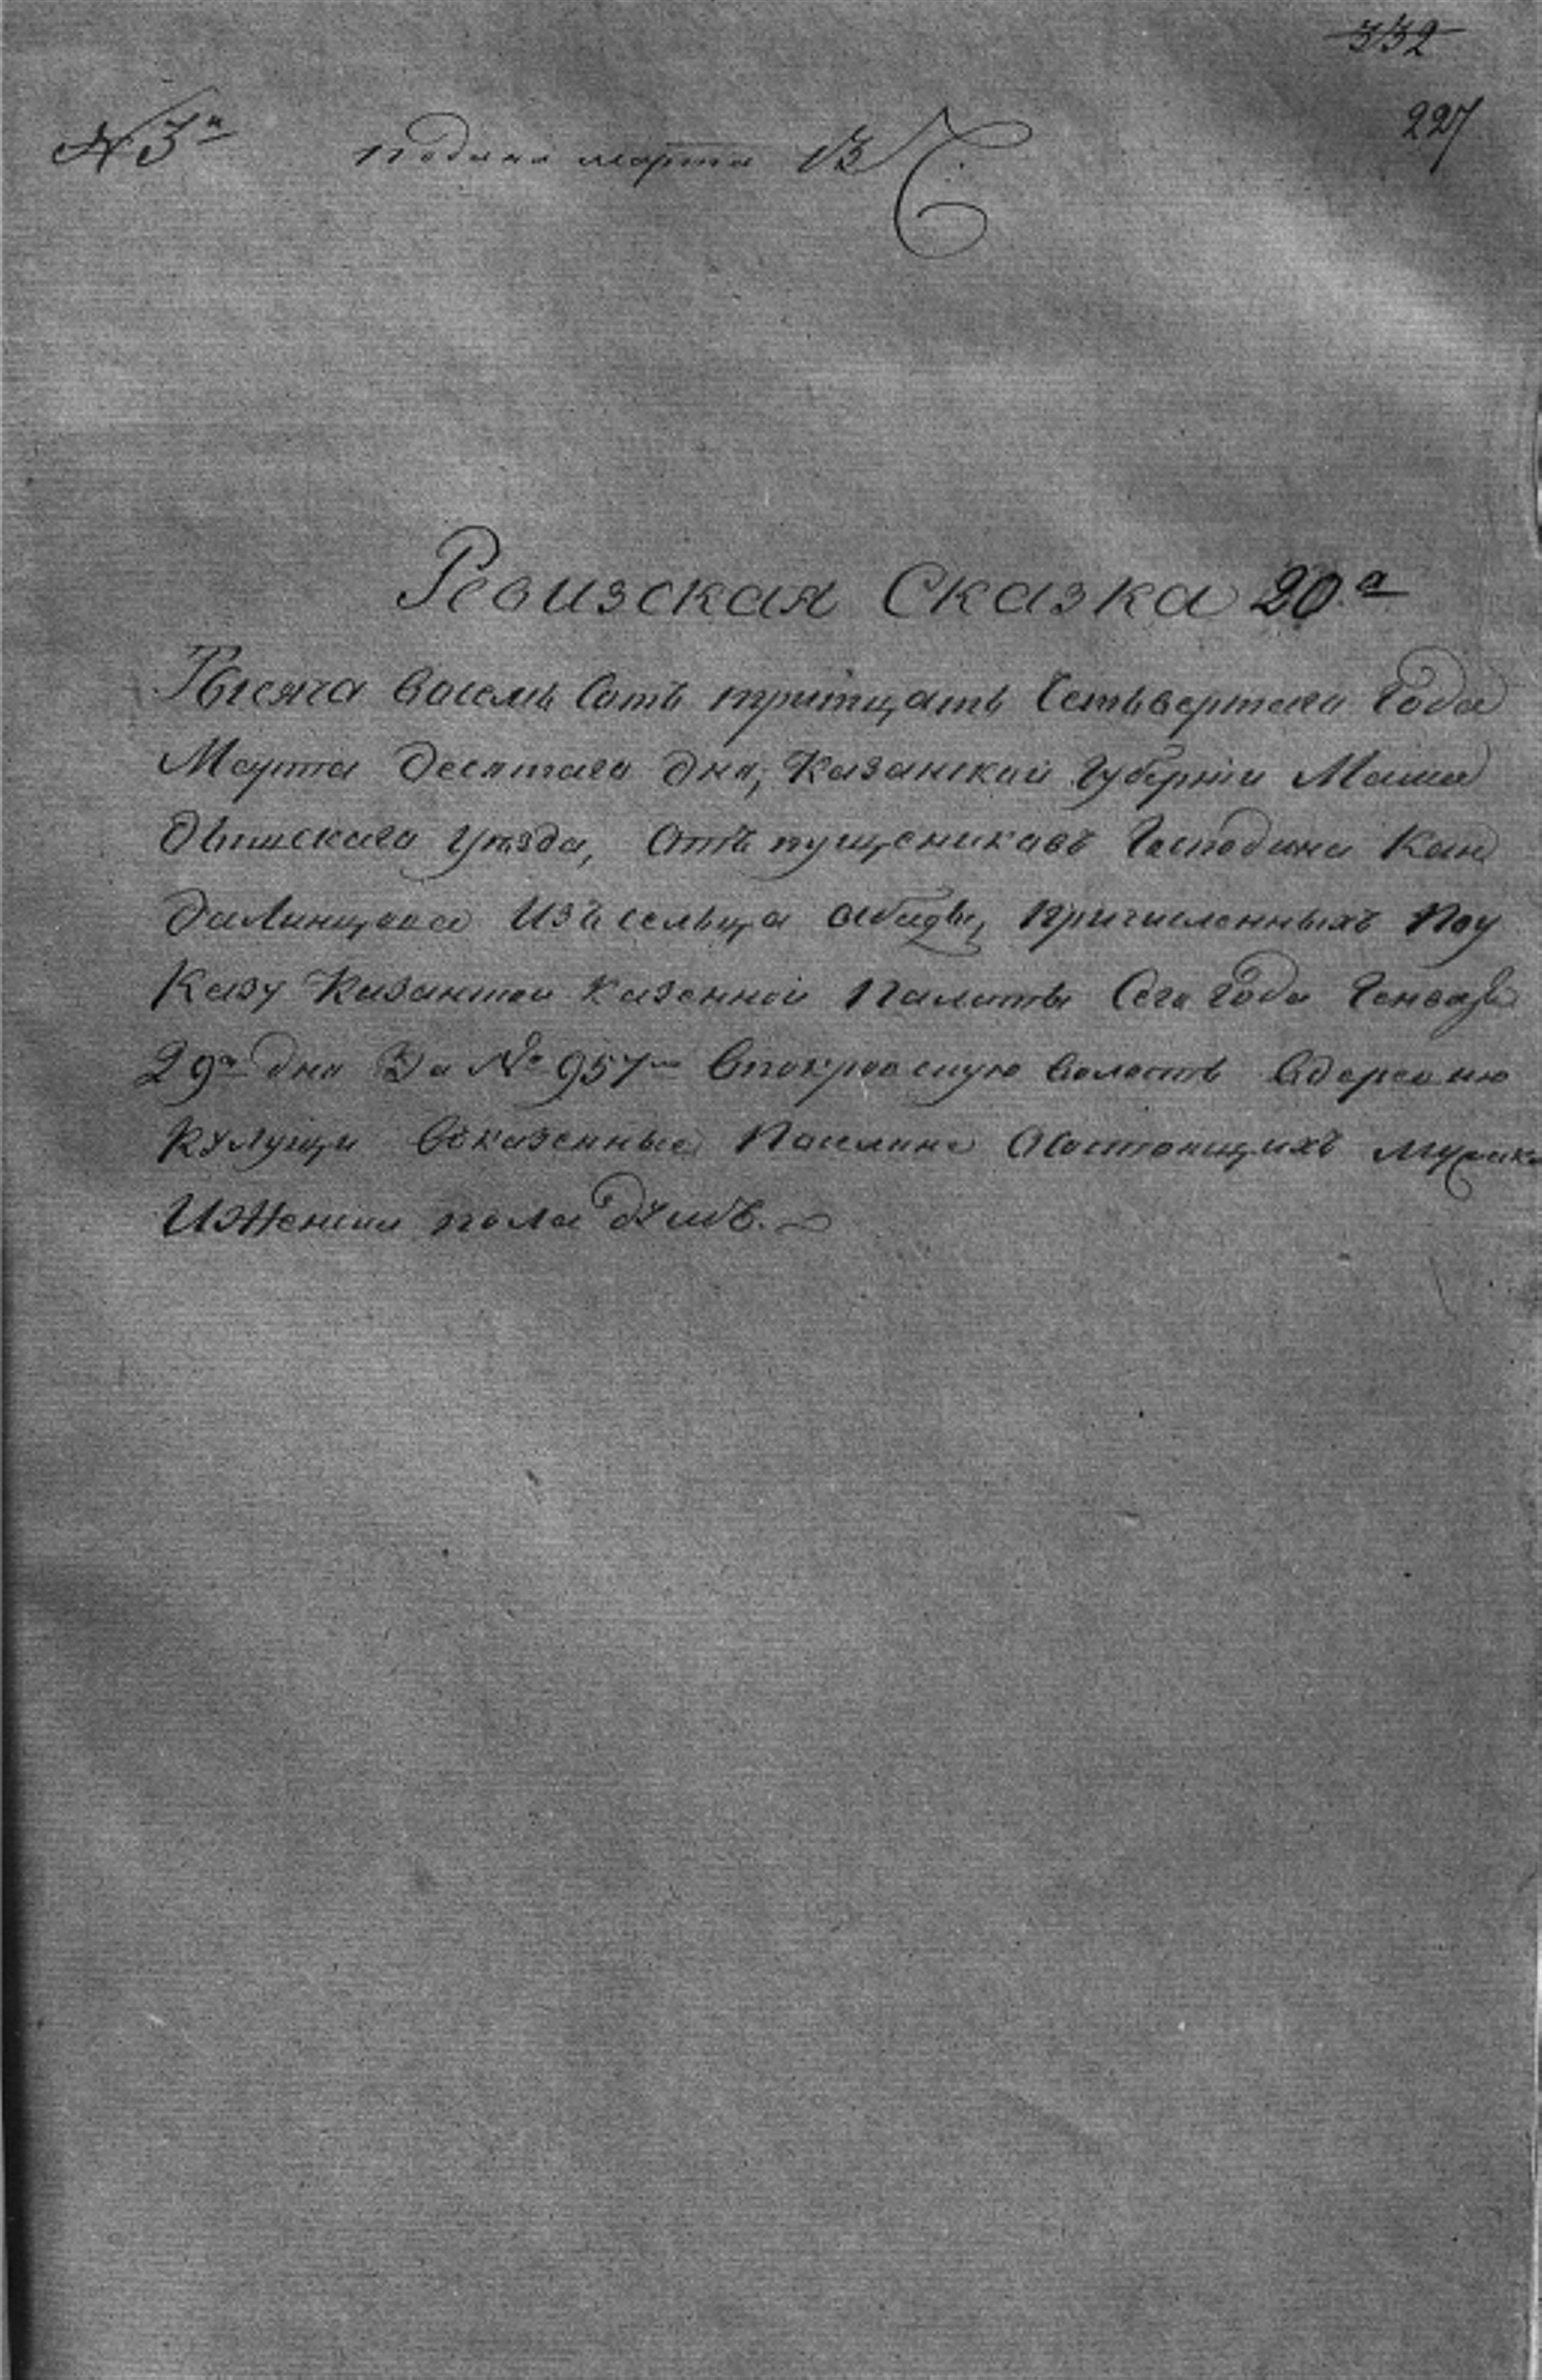 332
227
№ 3й подана марта 13
Ревизская Сказка 20.я
Тысяча восемь Сотъ тритцать Четьвертого Года
Марта десятаго дня, Казанской Губернiи Мама
дышскаго уѣзда, Отъ пущениковъ Господина Кан
далинцова Изъ сельца причисленныхъ Поу
Казу Казанской Казенной Палаты Сего Года Генваря
29го дня За № 957м Впокровскую Волость Вдеревню
Кулущи Оказенные Поселяне Осостоящихъ мужска
ИЖенска пола душъ.